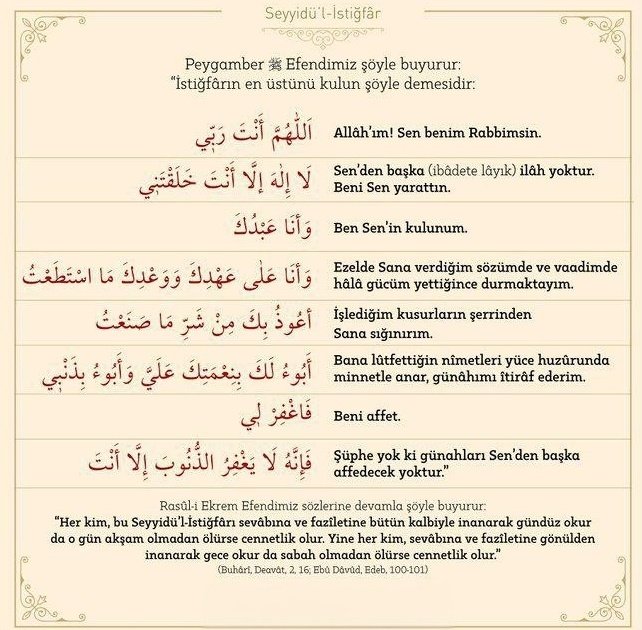 Seyyidü'l-İstiğfâr
Peygamber ﷺ Efendimiz şöyle buyurur:
“İstiğfârın en üstünü kulun şöyle demesidir:
اَللّٰهُمَّ أَنْتَ رَبِّي
Allâh'ım! Sen benim Rabbimsin.
لَا إِلٰهَ إِلَّا أَنْتَ خَلَقْتَنِي
Sen'den başka (ibâdete lâyık) ilâh yoktur.
Beni Sen yarattın.
وَأَنَا عَبْدُكَ
Ben Sen'in kulunum.
وَأَنَا عَلٰى عَهْدِكَ وَوَعْدِكَ مَا اسْتَطَعْتُ
Ezelde Sana verdiğim sözümde ve vaadimde
hâlâ gücüm yettiğince durmaktayım.
أَعُوذُ بِكَ مِنْ شَرِّ مَا صَنَعْتُ
İşlediğim kusurların şerrinden
Sana sığınırım.
أَبُوءُ لَكَ بِنِعْمَتِكَ عَلَيَّ وَأَبُوءُ بِذَنْبِي
Bana lûtfettiğin nîmetleri yüce huzûrunda
minnetle anar, günâhımı îtirâf ederim.
فَاغْفِرْ لِي
Beni affet.
فَإِنَّهُ لَا يَغْفِرُ الذُّنُوبَ إِلَّا أَنْتَ
Şüphe yok ki günahları Sen'den başka
affedecek yoktur.”
Rasûl-i Ekrem Efendimiz sözlerine devamla şöyle buyurur:
“Her kim, bu Seyyidü'l-İstiğfârı sevâbına ve fazîletine bütün kalbiyle inanarak gündüz okur
da o gün akşam olmadan ölürse cennetlik olur. Yine her kim, sevâbına ve fazîletine gönülden
inanarak gece okur da sabah olmadan ölürse cennetlik olur.”
(Buhârî, Deavât, 2, 16; Ebû Dâvûd, Edeb, 100-101)